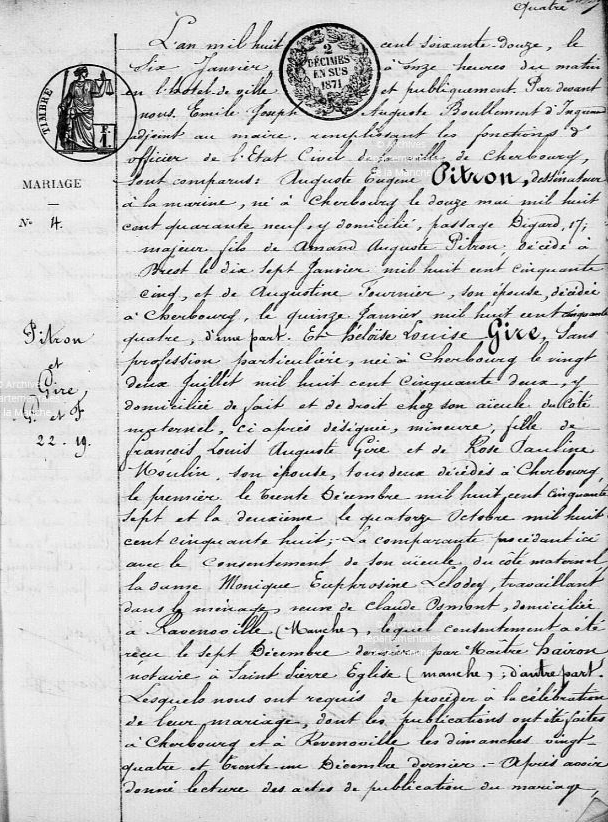 Quatre
2
DÉCIMES
EN SUS
1871
TIMBRE
MARIAGE
N° 4.
Pitron
et
Gire,
G. et F
22 - 19.
L'an mil huit cent soixante-douze, le
six Janvier à onze heures du matin
en l'hotel de ville et publiquement. Par devant
nous Emile Joseph Auguste Boullement d'Ingre
adjoint au maire, remplissant les fonctions d'
officier de l'Etat Civil de la ville de Cherbourg,
sont comparus: Auguste Eugene Pitron, dessinateur
à la marine, né à Cherbourg le douze mai mil huit
cent quarante neuf, y domicilié, passage Digard, 17;
majeur fils de Amand Auguste Pitron, décédé à
Brest le dix sept Janvier mil huit cent cinquante
cinq, et de Augustine Fournier, son épouse, décédée
à Cherbourg, le quinze Janvier mil huit cent cinquante
quatre, d'une part. Et Héloïse Louise Gire, sans
profession particulière, née à Cherbourg le vingt
deux Juillet mil huit cent cinquante deux, y
domiciliée de fait et de droit chez son aïeule du côté
maternel, ci après désignée, mineure, fille de
françois Louis Auguste Gire et de Rose Pauline
Moulin, son épouse, tous deux décédés à Cherbourg,
le premier le trente Décembre mil huit cent cinquante
sept et la deuxième le quatorze Octobre mil huit
cent cinquante huit; La comparante procédant ici
avec le consentement de son aïeule du côté maternel,
la dame Monique Euphrosine Lelodey, travaillant
dans le ménage, veuve de Claude Osmont, domiciliée
à Ravenoville (Manche), lequel consentement a été
reçu le sept Décembre dernier par Maitre hairon
notaire à Saint Pierre Eglise (manche); d'autre part.
Lesquels nous ont requis de procéder à la célébration
de leur mariage, dont les publications ont été faites
à Cherbourg et à Revenoville les dimanches vingt-
quatre et trente-un Décembre dernier. - Après avoir
donné lecture des actes de publication du mariage,
© Archives
départementales
de la Manche